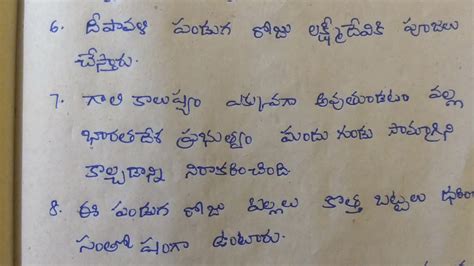 6. దీపావళి పండుగ రోజు లక్ష్మీదేవికి పూజలు
చేస్తారు.
7. గాలి కాలుష్యం ఎక్కువగా అవుతుండటం వల్ల
భారతదేశ ప్రభుత్వం మందు గుండు సామాగ్రిని
కాల్చడాన్ని నిరాకరించింది.
8. ఈ పండుగ రోజు పిల్లలు కొత్త బట్టలు
సంతోషంగా ఉంటారు.